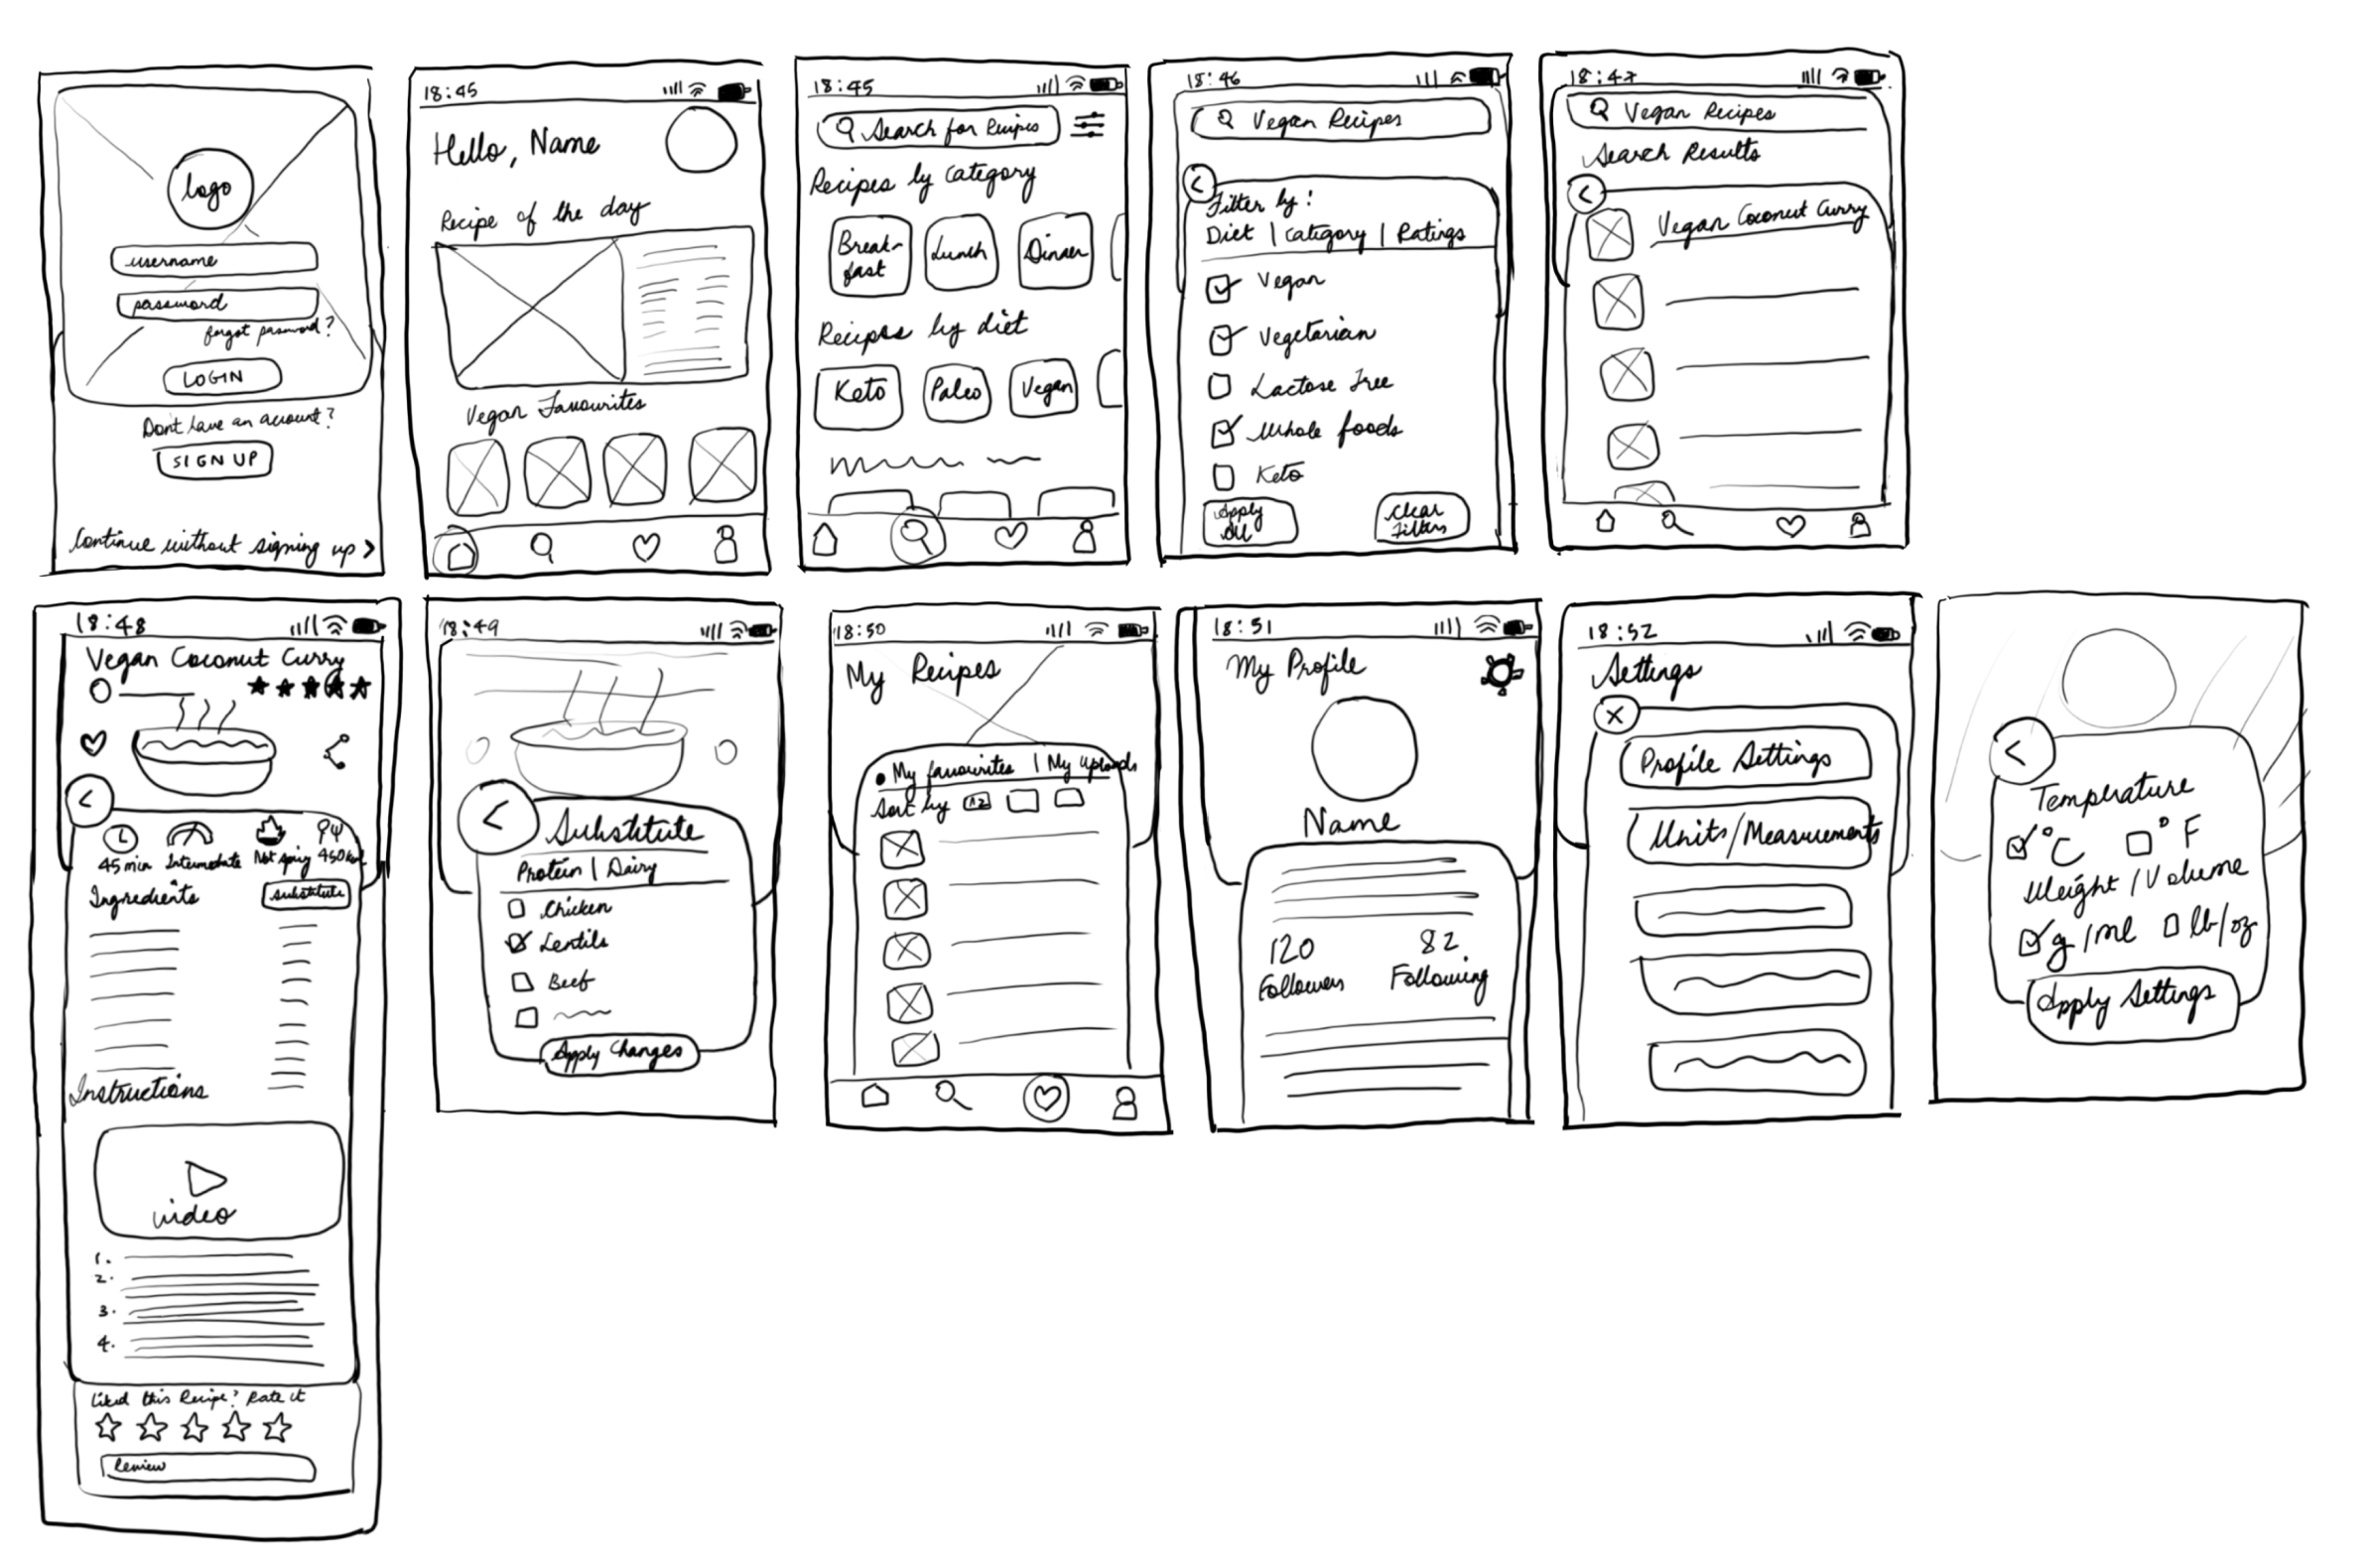 logo
username
password
forgot password?
LOGIN
Dont have an account?
SIGN UP
Continue without signing up >
18:45
Hello, Name
Recipe of the day
Vegan Favourites
18:45
Search for Recipes
Recipes by Category
Break-
fast
Lunch
Dinner
Recipes by diet
Keto
Paleo
Vegan
18:46
Vegan Recipes
Filter by:
Diet | Category | Ratings
Vegan
Vegetarian
Lactose Free
Whole foods
Keto
Apply
All
Clear
Filters
18:47
Vegan Recipes
Search Results
Vegan Coconut Curry
18:48
Vegan Coconut Curry
45 min Intermediate Not Spicy 450kcal
Ingredients
Substitute
Instructions
video
1.
2.
3.
4.
Liked this Recipe? Rate it
Review
18:49
Substitute
Protein | Dairy
Chicken
Lentils
Beef
Apply Changes
18:50
My Recipes
My favourites | My uploads
Sort by AZ
18:51
My Profile
Name
120
Followers
82
Following
18:52
Settings
Profile Settings
Units/Measurements
Temperature
°C °F
Weight/Volume
g/ml lb/oz
Apply Settings